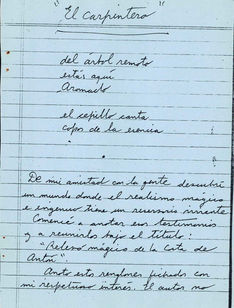 "El Carpintero"
del árbol remoto
estás aquí
Aromado
el cepillo canta
copos de la esencia
De mi amistad con la gente descubrí
un mundo donde el realismo mágico
e ingenuo tiene un reservorio viviente
Comencé a anotar esos testimonios
y a reunirlos bajo el título:
mágico de la Cota de
Anoto estos renglones fichados con
mi respetuoso interés. El autor no